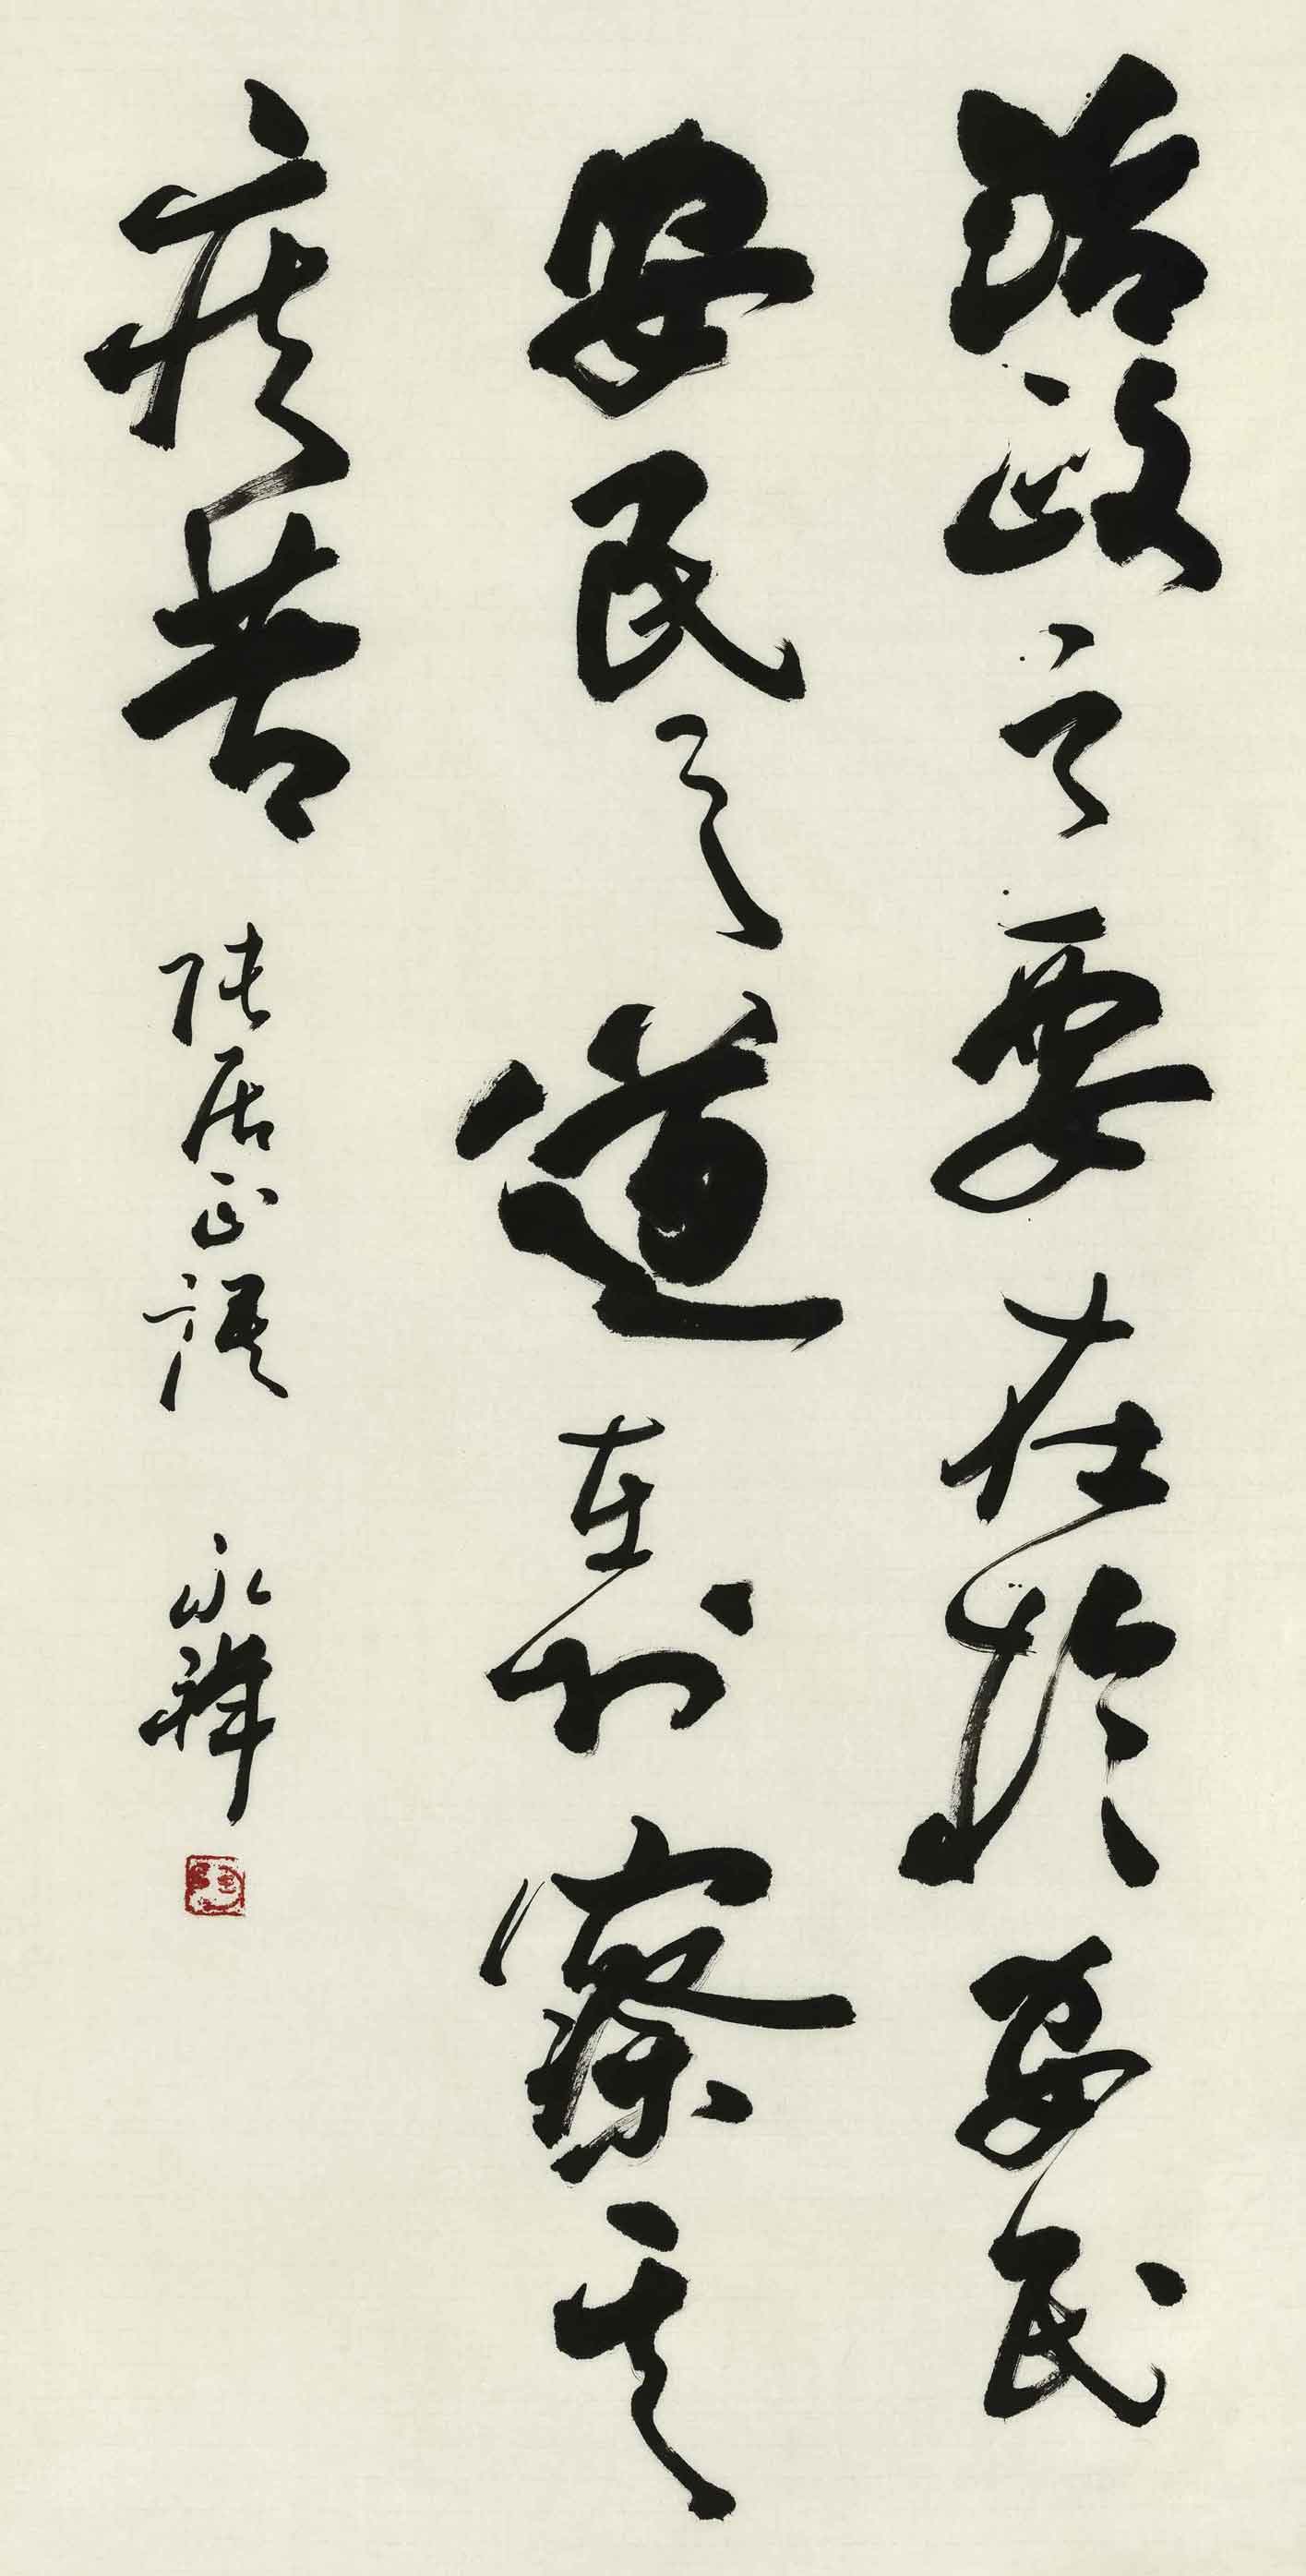 治政之要在於安民
安民之道在於察其
疾苦 張居正語 永禅